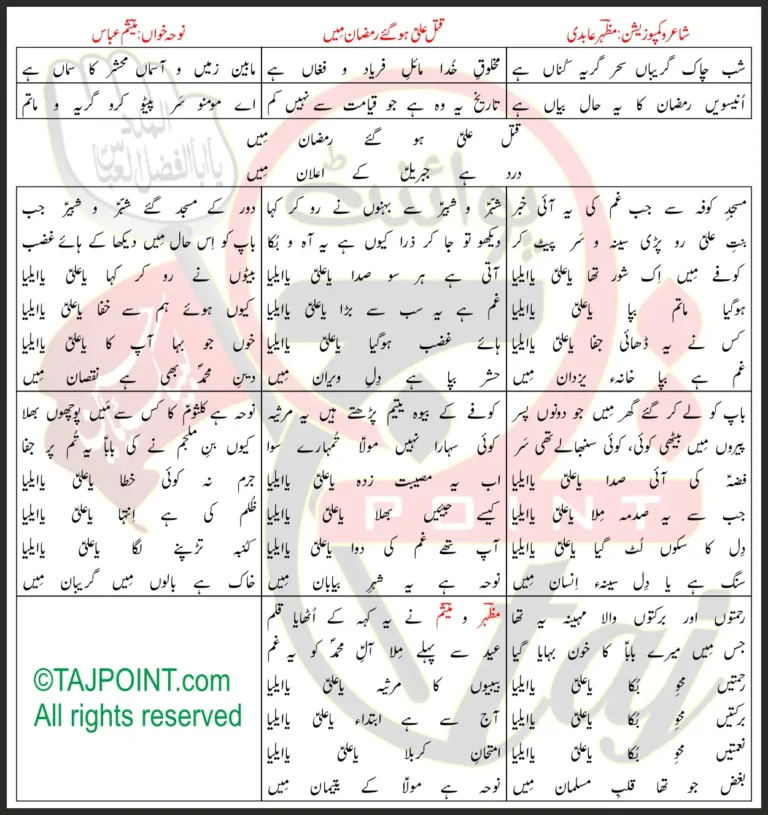 شاعر و کمپوزیشن: مظہر عابدی
قتل علیؑ ہو گئے رمضان میں
نوحہ خواں: میثم عباس
شب چاک گریباں سحر گریہ کُناں ہے
مخلوقِ خُدا مائلِ فریاد و فغاں ہے
مابین زمیں و آسماں محشر کا سماں ہے
اُنیسویں رمضان کا یہ حال بیاں ہے
تاریخ یہ وہ ہے جو قیامت سے نہیں کم
اے مومنو سَر پیٹو کرو گریہ و ماتم
قتل علیؑ ہو گئے رمضان میں
درد ہے جبریلؑ کے اعلان میں
مسجدِ کوفہ سے جب غم کی یہ آئی خبر
بنتِ علیؑ رو پڑی سینہ و سَر پیٹ کر
کوفے میں اِک شور تھا یاعلیؑ یاایلیا
ہوگیا ماتم بپا یاعلیؑ یاایلیا
کس نے یہ ڈھائی جفا یاعلیؑ یاایلیا
غم ہے بپا خانہء یزدان میں
شبرؑ و شبیرؑ سے بہنوں نے رو کر کہا
دیکھو تو جا کر ذرا کیوں ہے یہ آہ و بُکا
آتی ہے ہر سو صدا یاعلیؑ یاایلیا
غم ہے یہ سب سے بڑا یاعلیؑ یاایلیا
ہائے غضب ہوگیا یاعلیؑ یاایلیا
حشر بپا ہے دلِ ویران میں
دور کے مسجد گئے شبرؑ و شبیرؑ جب
باپ کو اِس حال میں دیکھا کے ہائے غضب
بیٹوں نے رو کر کہا یاعلیؑ یاایلیا
کیوں ہوئے ہم سے خفا یاعلیؑ یاایلیا
خوں جو بہا آپ کا یاعلیؑ یاایلیا
دینِ محمدؐ بھی ہے نقصان میں
باپ کو لے کر گئے گھر میں جو دونوں پسر
پیروں میں بیٹھی کوئی، کوئی سنبھالے تھی سَر
فضہؑ کی آئی صدا یاعلیؑ یاایلیا
جب سے یہ صدمہ مِلا یاعلیؑ یاایلیا
دِل کا سکوں لُٹ گیا یاعلیؑ یاایلیا
سنگ ہے یا دِل سینہء اِنسان میں
کوفے کے بیوہ یتیم پڑھتے ہیں یہ مرثیہ
کوئی سہارا نہیں مولاؑ تُمہارے سوا
اب یہ مصیبت زدہ یاعلیؑ یاایلیا
کیسے جیئیں بھلا یاعلیؑ یاایلیا
آپ تھے غم کی دوا یاعلیؑ یاایلیا
نوحہ ہے یہ شہرِ بیابان میں
نوحہ ہے کلثومؑ کا کس سے مَیں پوچھوں بھلا
کیوں بنِ ملجم نے کی باباؑ یہ تُم پر جفا
جرم نہ کوئی خطا یاعلیؑ یاایلیا
ظُلم کی ہے اِنتہا یاعلیؑ یاایلیا
کنبہ تڑپنے لگا یاعلیؑ یاایلیا
خاک ہے بالوں میں گریبان میں
رحمتوں اور برکتوں والا مہینہ یہ تھا
جس میں میرے باباؑ کا خون بہایا گیا
رحمتیں محوِ بُکا یاعلیؑ یاایلیا
برکتیں محوِ بُکا یاعلیؑ یاایلیا
نعمتیں محوِ بُکا یاعلیؑ یاایلیا
بغض جو تھا قلبِ مسلمان میں
مظہر و میثم نے یہ کہہ کے اُٹھایا قلم
عید سے پہلے مِلا آلِ محمدؐ کو یہ غم
بیبیوں کا مرثیہ یاعلیؑ یاایلیا
آج سے ہے ابتداء یاعلیؑ یاایلیا
امتحانِ کربلا یاعلیؑ یاایلیا
نوحہ ہے مولاؑ کے یتیمان میں
©TAJPOINT.com
All rights reserved
پوائنٹ
POINT
taj